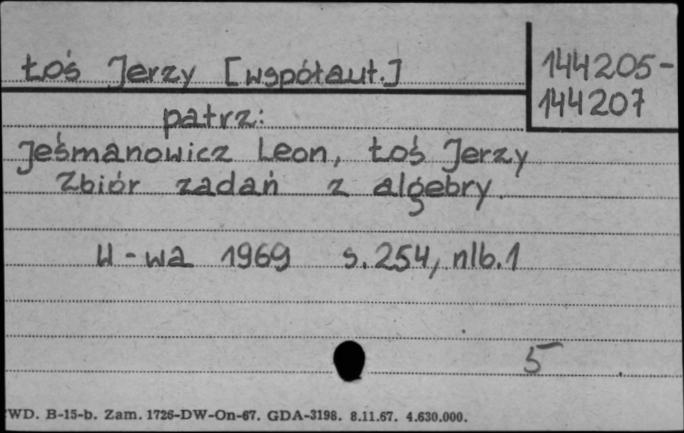 Łoś Jerzy [współaut.]
144205-
144207
patrz:
Jeśmanowicz Leon, Łoś Jerzy
Zbiór zadań z algebry.
W-wa 1969 s. 254, nlb. 1
5
WD. B-15-b. Zam. 1726-DW-On-67. GDA-3198. 8.11.67. 4.630.000.